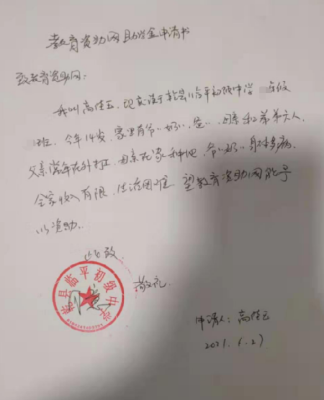 教育资助网助学金申请书
致教育资助网：
我叫高佳玉，现就读于乾县临平初级中学
班，今年14岁，家里有爷、奶、爸、妈和弟弟六人
父亲常年在外打工，母亲在家种地，爷、奶、身体多病，
全家收入有限，生活困难，望教育资助网给予
以资助。
此致
敬礼
乾县临平初级中学
申请人：高佳玉
2021.1.27